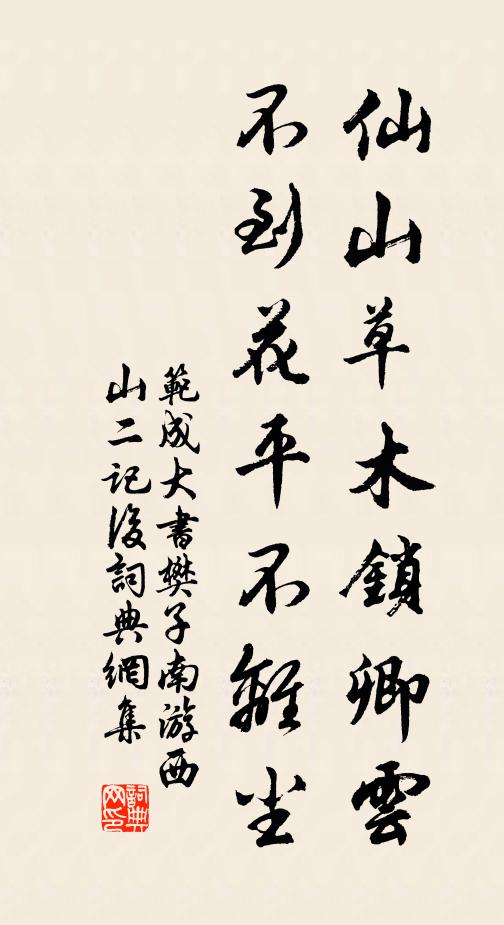 仙山草木鎖卿雲
不到花平不離尘
範成大書樊子南游西
山二记後詞典網集
詞典
网印